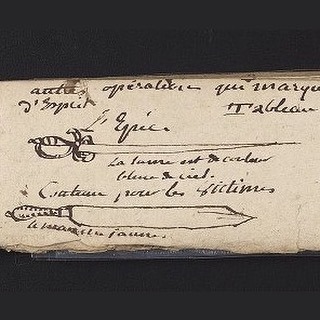 autres opération qui marque
d'Esprit Tableau
L'Epée
La lame est de couleur
bleue de ciel.
Couteau pour les victimes
a manche jaune.